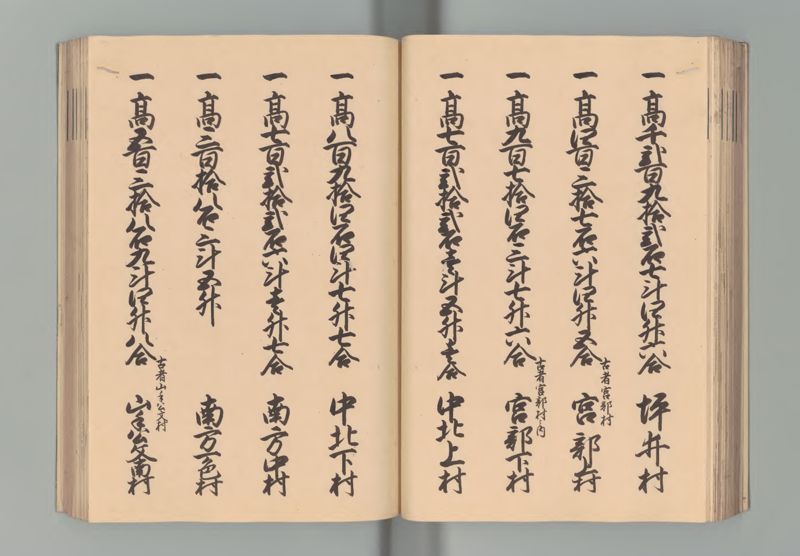 一 高千弐百九拾弐石七斗四升六合 坪井村
一 高四百三拾七石六斗四升五合 古者宮部村 宮部上村
一 高九百七拾四石三斗七升六合 古者宮部村ノ内 宮部下村
一 高七百弐拾弐石壱斗五升壱合 中北上村
一 高八百九拾四石四斗七升七合 中北下村
一 高七百弐拾弐石六斗壱升七合 南方中村
一 高三百拾八石三斗五升 南方一色村
一 高五百三拾八石九斗四升八合 古者山手公文村 山手公文南村